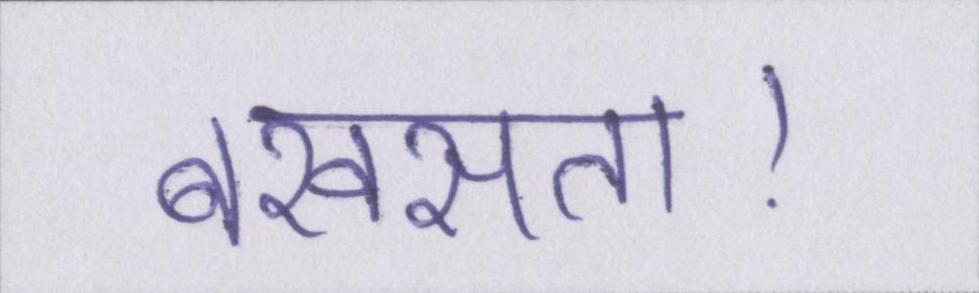 बखसता!